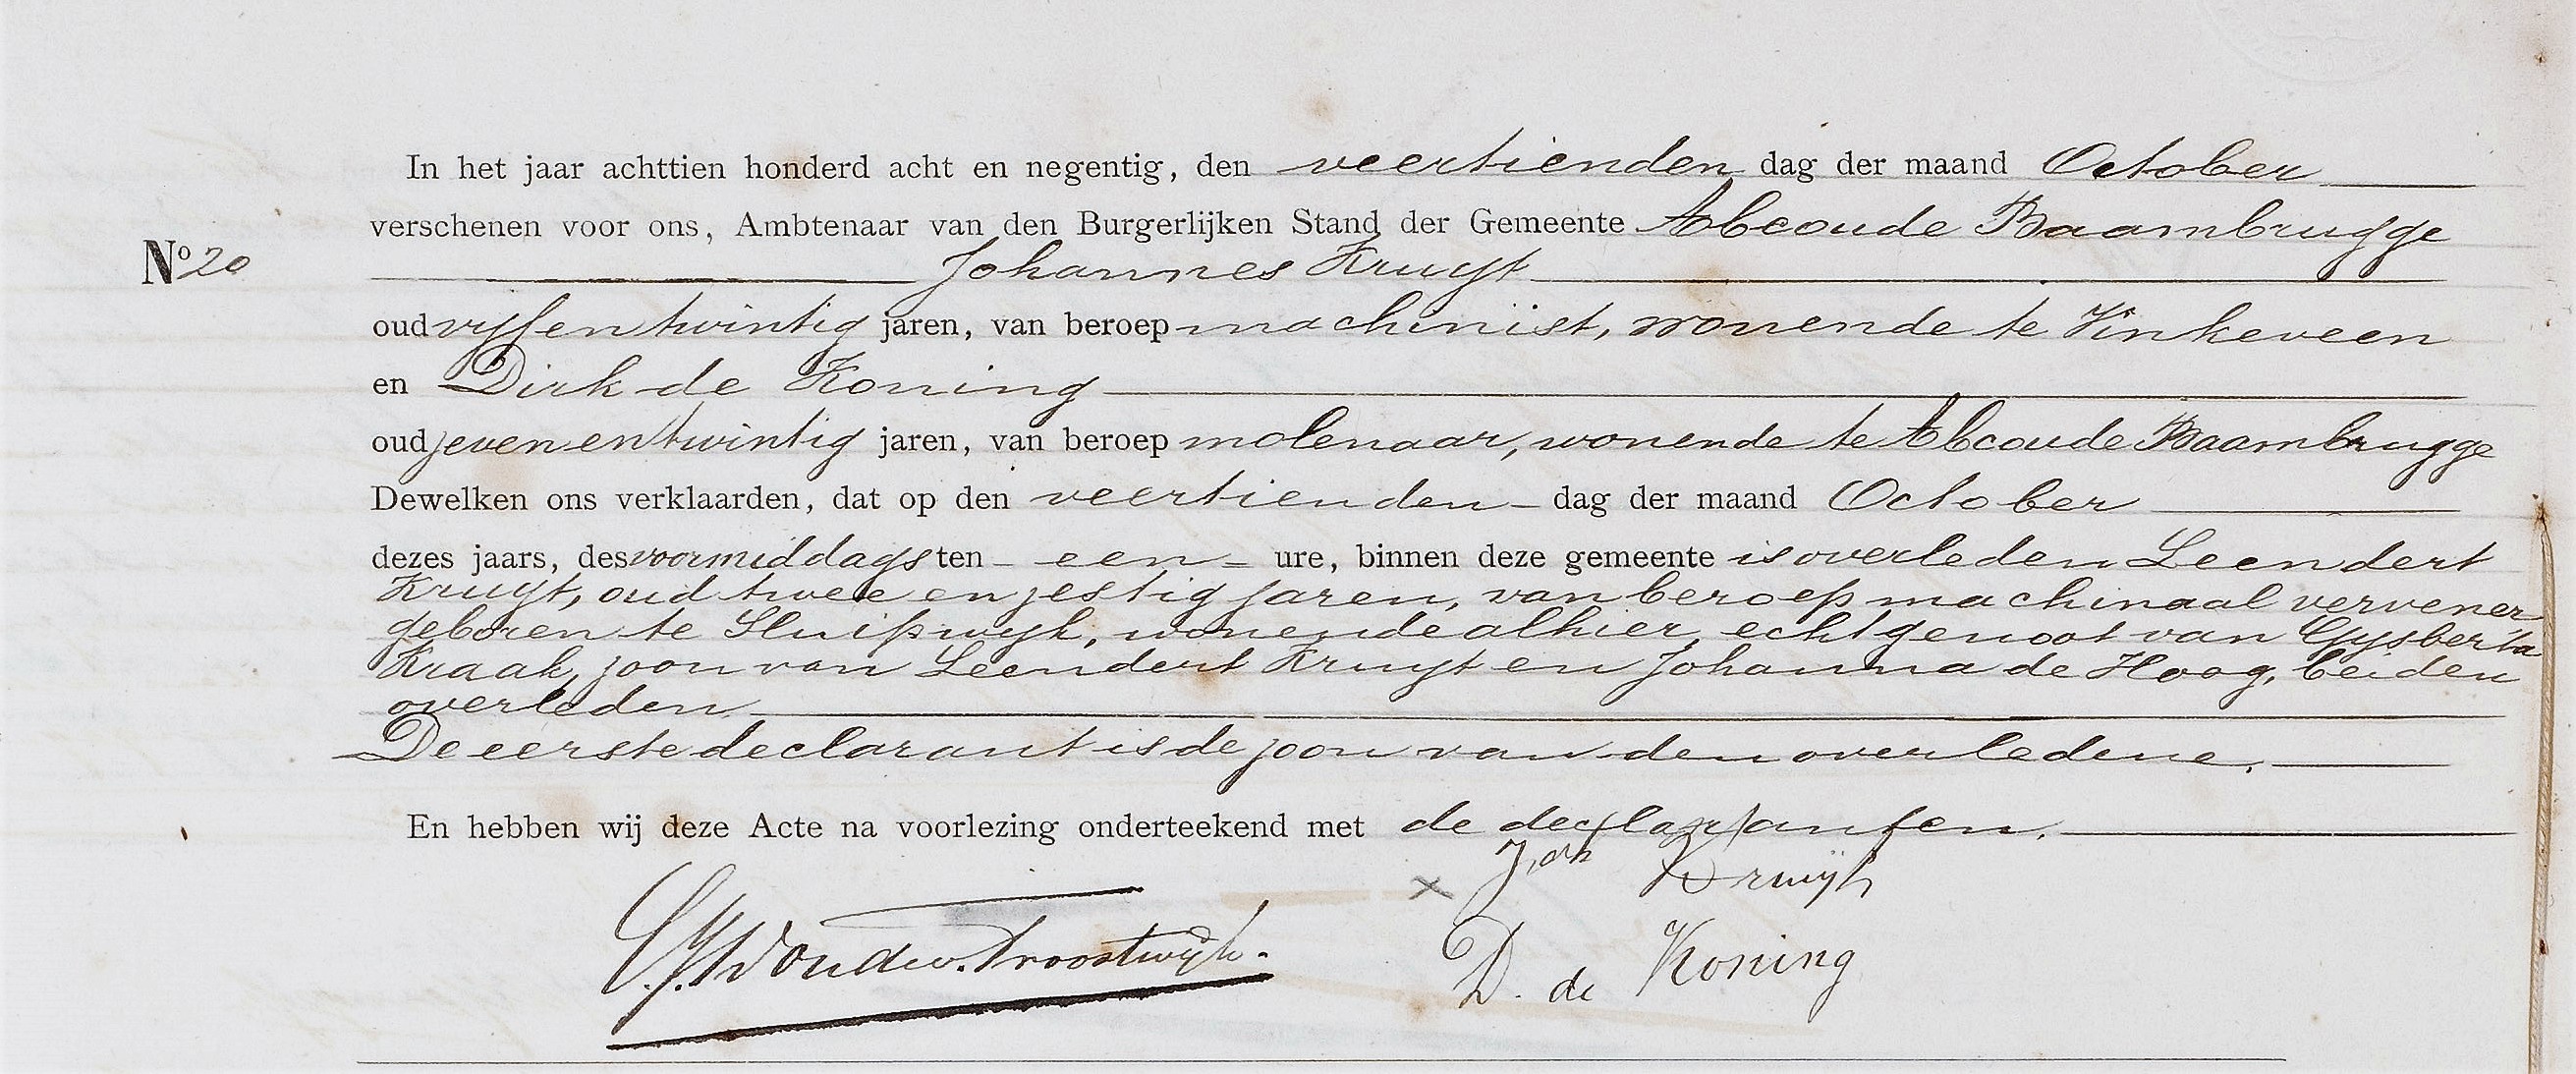 In het jaar achttien honderd acht en negentig, den veertienden dag der maand October
verschenen voor ons, Ambtenaar van den Burgerlijken Stand der Gemeente Abcoude Baambrugge
No 20
Johannes Kruyt
oud vyfentwintig jaren, van beroep machinist, wonende te Vinkeveen
en Dirk de Koning
oud zevenentwintig jaren, van beroep molenaar, wonende te Abcoude Baambrugge
Dewelken ons verklaarden, dat op den veertienden dag der maand October
dezes jaars, des voormiddags ten een ure, binnen deze gemeente is overleden Leendert
Kruyt, oud twee en zestig jaren, van beroep machinaal vervener
geboren te Sluipwyk, wonende alhier, echtgenoot van Gysberta
Kraak, zoon van Leendert Kruyt en Johanna de Hoog, beiden
overleden.
De eerste declarant is de zoon van den overledene.
En hebben wij deze Acte na voorlezing onderteekend met de declaranten.
Joh Kruijt
Troostwijk.
D. de Koning